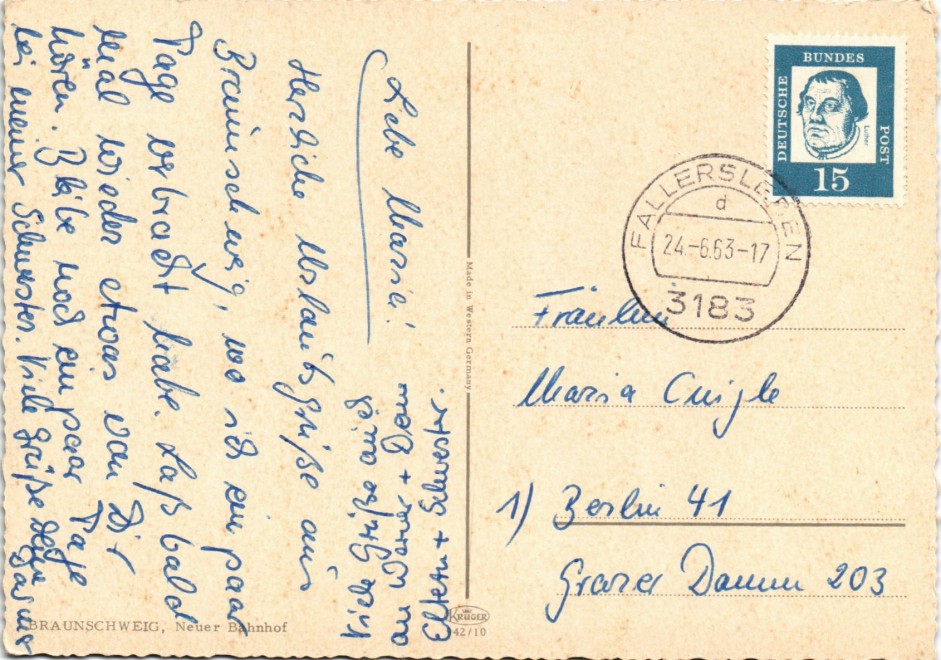 Liebe Maria!
Herzliche Urlaubsgrüße aus
Braunschweig, wo ich ein paar
Tage verbracht habe. Laß bald
mal wieder etwas von Dir
hören. Bleibe noch ein paar Tage
bei meiner Schwester. Viele Grüße Deine
Viele Grüße auch
an Werner + Deine
Eltern + Schwester.
BRAUNSCHWEIG, Neuer Bahnhof
Made in Western Germany
KRÜGER
42/10
DEUTSCHE BUNDES POST
Luther
15
FALLERSLEBEN
d
24.-6.63-17
3183
Fräulein
Maria
1) Berlin 41
Grazer Damm 203